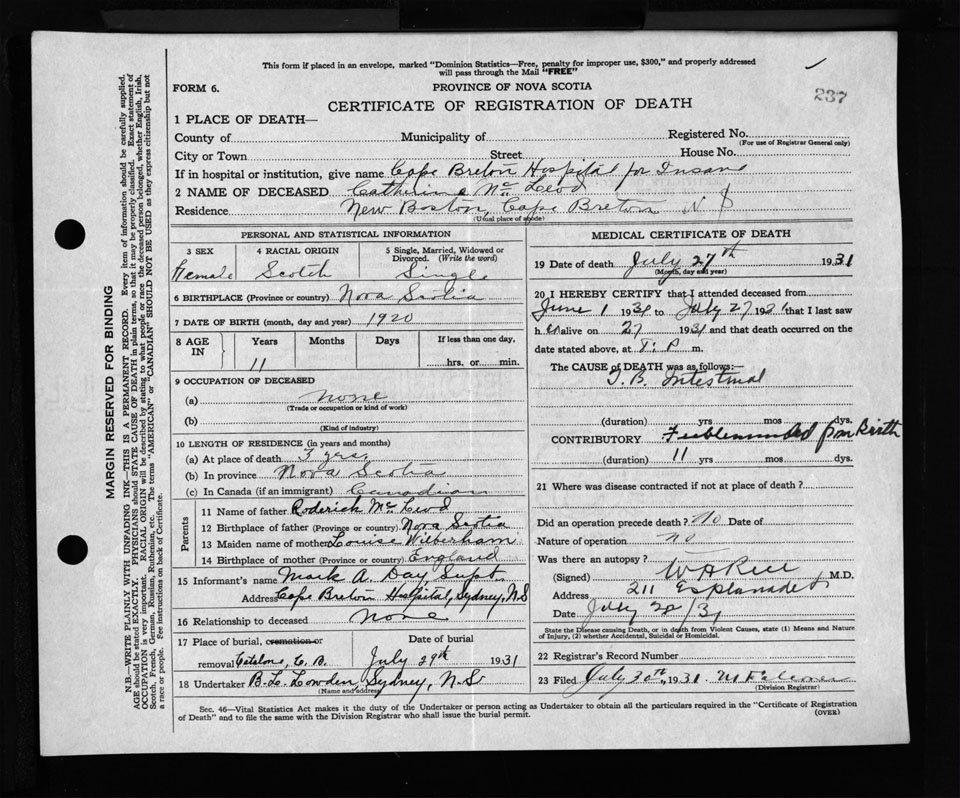 This form if placed in an envelope, marked "Dominion Statistics—Free, penalty for improper use, $300," and properly addressed
will pass through the Mail "FREE"
237
FORM 6.
PROVINCE OF NOVA SCOTIA
CERTIFICATE OF REGISTRATION OF DEATH
1 PLACE OF DEATH—
County of Municipality of Registered No.
(For use of Registrar General only)
City or Town Street House No.
If in hospital or institution, give name Cape Breton Hospital for Insane
2 NAME OF DECEASED Catherine McLeod
Residence New Boston, Cape Breton N S
(Usual place of abode)
PERSONAL AND STATISTICAL INFORMATION
3 SEX 4 RACIAL ORIGIN 5 Single, Married, Widowed or
Divorced. (Write the word)
Female Scotch Single
6 BIRTHPLACE (Province or country) Nova Scotia
7 DATE OF BIRTH (month, day and year) 1920
8 AGE IN Years Months Days If less than one day,
11 hrs. or min.
9 OCCUPATION OF DECEASED
(a) none
(Trade or occupation or kind of work)
(b)
(Kind of industry)
10 LENGTH OF RESIDENCE (in years and months)
(a) At place of death 3 yrs.
(b) In province Nova Scotia
(c) In Canada (if an immigrant) Canadian
Parents
11 Name of father Roderick McLeod
12 Birthplace of father (Province or country) Nova Scotia
13 Maiden name of mother Louise Wilberham
14 Birthplace of mother (Province or country) England
15 Informant's name Mark A. Day, Supt.
Address Cape Breton Hospital, Sydney, N.S
16 Relationship to deceased None
17 Place of burial, cremation or Date of burial
removal Catalone, C. B. July 29th 1931
18 Undertaker B. L. Lowden Sydney, N.S
(Name and address)
MEDICAL CERTIFICATE OF DEATH
19 Date of death July 27th 1931
(Month, day and year)
20 I HEREBY CERTIFY that I attended deceased from
June 1 1931 to July 27 1931 that I last saw
h er alive on 27 1931 and that death occurred on the
date stated above, at P. m.
The CAUSE of DEATH was as follows:—
T. B. Intestinal
(duration) yrs mos dys.
CONTRIBUTORY Feebleminded from Birth
(duration) 11 yrs mos dys.
21 Where was disease contracted if not at place of death?
Did an operation precede death? No Date of
Nature of operation no
Was there an autopsy?
(Signed) M.D.
Address 211 Esplanade
Date July 31
State the Disease causing Death, or in death from Violent Causes, state (1) Means and Nature
of Injury, (2) whether Accidental, Suicidal or Homicidal.
22 Registrar's Record Number
23 Filed July 30th, 1931
(Division Registrar)
Sec. 46—Vital Statistics Act makes it the duty of the Undertaker or person acting as Undertaker to obtain all the particulars required in the "Certificate of Registration
of Death" and to file the same with the Division Registrar who shall issue the burial permit.
(OVER)
MARGIN RESERVED FOR BINDING
N.B.—WRITE PLAINLY WITH UNFADING INK—THIS IS A PERMANENT RECORD. Every item of information should be carefully supplied.
AGE should be stated EXACTLY. PHYSICIANS should STATE CAUSE OF DEATH in plain terms, so that it may be properly classified. Exact statement of
OCCUPATION is very important. RACIAL ORIGIN will be described by stating to what people or race the deceased person belonged, whether English, Irish,
Scotch, French, German, Russian, Ruthenian, etc. The terms "AMERICAN" or "CANADIAN" SHOULD NOT BE USED as they express citizenship but not
a race or people. See instructions on back of Certificate.